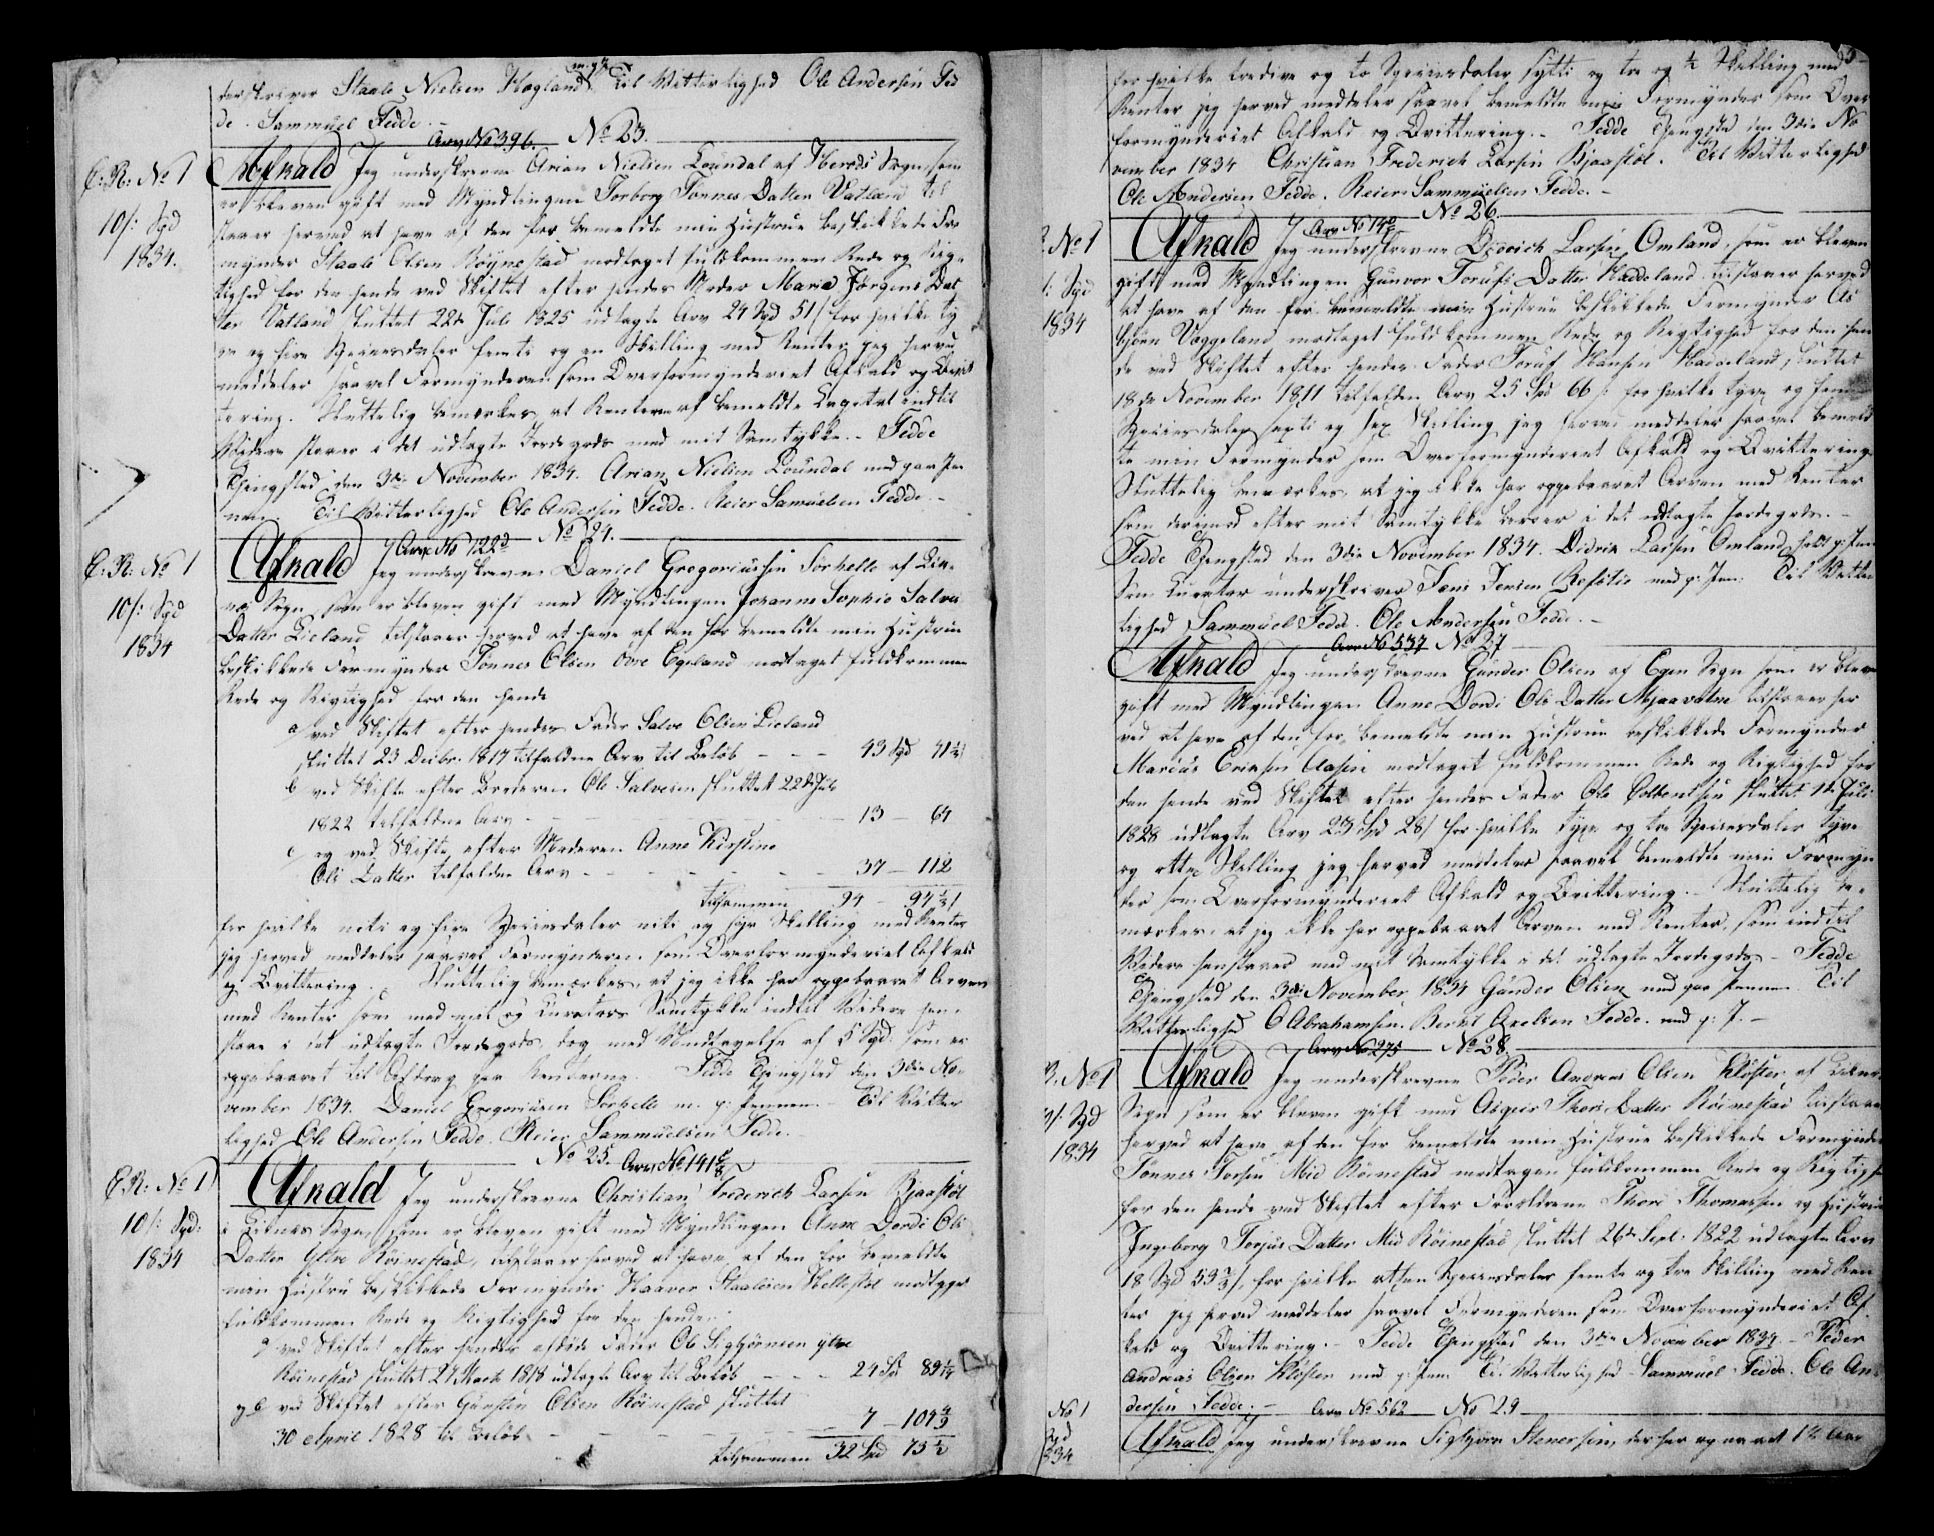 derskriver Staale Nielsen Høgland m. g. P. Til Vitterlighed Ole Andersen Fed
de. Sammuel Fedde.
Arv No 396. No 23.
C: R: No 1
10/: Spd
1834.
Afkald Jeg underskrevne Arian Nielsen Loundal af Herods Sogn, som
er bleven gift med Myndlingen Torborg Tønnes Datter Vatland til
staaer herved at have af den for bemeldte min Hustrue beskikkede For
mynder Staale Olsen Røynestad modtaget fuldkommen Rede og Rigt-
tighed for den hende ved Skiftet efter hendes Moder Maria Jørgens Dat
ter Vatland sluttet 22de Juli 1825 udlagte Arv 24 Spd 51/ for hvilke ty
ve og fire Speciesdaler femti og en Skilling med Renter jeg herved
meddeler saavel Formynderen som Overformynderiet Afkald og Qvit
tering. Sluttelig bemærkes, at Renterne af bemeldte Capital indtil
Videre staaer i det udlagte Jordegods med mit Samtykke. – Fedde
Thingsted den 3die November 1834. Arian Nielsen Loundal med paa Pen
nen. Til Vitterlighed Ole Andersen Fedde. Reier Samuelsen Fedde. –
Arv No 122d No 24.
C: R: No 1
10/: Spd
1834
Afkald Jeg underskrevne Daniel Gregoriussen Sørhelle af Lik-
nes Sogn, som er bleven gift med Myndlingen Johanne Sophie Salves
Datter Lieland tilstaaer herved at have af den for bemeldte min Hustrue
beskikkede Formynder Tønnes Olsen Øvre Egeland modtaget fuldkommen
Rede og Rigtighed for den hende
a/ ved Skiftet efter hendes Fader Salve Olsen Lieland
sluttet 23 Decbr. 1817 tilfaldne Arv til Beløb – – – 43 Spd 41½/
b ved Skifte efter Broderen Ole Salvesen sluttet 22de Juli
1822 tilfaldne Arv – – – 13 – 64
c/ og ved Skifte efter Moderen Anne Kirstine
Ols Datter tilfaldne Arv – – – 37 – 112
tilsammen 94 – 97½/
for hvilke niti og fire Speciesdaler niti og syv Skilling med Renter
jeg herved meddeler saavel Formynderen som Overformynderiet Afkald
og Qvittering. – Sluttelig bemærkes, at jeg ikke har oppebaaret Arven
med Renter som med mit og Curators Samtykke indtil Videre hen-
staae i det udlagte Jordegods, dog med Undtagelse af 5 Spd. som er
oppebaaret til Afdrag paa Renterne. Fedde Thingsted den 3die No-
vember 1834. Daniel Gregoriusen Sørhelle m. p: Pennen. – Til Vitter
lighed Ole Andersen Fedde. Reier Sammuelsen Fedde. –
No 25. Arv No 141
C: R: No 1
10/: Spd:
1834
Afkald Jeg underskrevne Christian Frederich Larsen Bjaastøl
i Liknes Sogn, som er bleven gift med Myndlingen Anne Dordi Ols
Datter Ytre Røinestad, tilstaaer herved at have af den for bemeldte
min Hustru beskikkede Formynder Haaver Staalesen Skellestøl modtaget
fuldkommen Rede og Rigtighed for den hende:
a) ved Skiftet efter hendes afdøde Fader Ole Sigbjørnsen Ytre
Røinestad sluttet 27 Marts 1818 udlagte Arv til Beløb – – – 24 Spd 89¼
og b ved Skiftet efter Gunsten Olsen Røinestad sluttet
30 April 1828 til Beløb – – – 7 – 104
tilsammen 32 Spd 73½
for hvilke tredive og to Speciesdaler sytti og tre og ½ Skilling med
Renter jeg herved meddeler saavel bemeldte min Formynder som Over
formynderiet Afkald og Qvittering. – Fedde Thingsted den 3die No
vember 1834 Christian Frederich Larsen Bjaastøl. Til Vitterlighed
Ole Andersen Fedde. Reier Sammuelsen Fedde. –
Arv No 140 No 26.
No 1
/: Spd
1834
Afkald Jeg underskrevne Didrich Larsen Omland, som er bleven
gift med Myndlingen Gunvor Torufs Datter Haddeland tilstaaer herved
at have af den for bemeldte min Hustrue beskikkede Formynder As
biørn Væggeland modtaget fuldkommen Rede og Rigtighed for den hen
de ved Skiftet efter hendes Fader Toruf Hansen Haddeland, sluttet
18de November 1811 tilfaldne Arv 25 Spd 66/: for hvilke tyve og fem
Speciesdaler sexti og sex Skilling jeg herved meddeler saavel bemeld
te min Formynder som Overformynderiet Afkald og Qvittering.
Sluttelig bemærkes, at jeg ikke har oppebaaret Arven med Renter
som derimod efter mit Samtykke beroer i det udlagte Jordegods. –
Fedde Thingsted den 3die November 1834. Didrik Larsen Omland holdt p: Pen
Som Curator underskriver Tønnes Jensen Refstie med p: Pen: Til Vitter
lighed Sammuel Fedde. Ole Andersen Fedde. –
Arv No 537 No 27
Afkald Jeg underskrevne Gunder Olsen af Egen Sogn som er bleven
gift med Myndlingen Anne Dordi Ols Datter Mjaavatne tilstaaer her
ved at have af den for bemeldte min Hustrue beskikkede Formynder
Marcus Eriksen Aasen modtaget fuldkommen Rede og Rigtighed for
den hende ved Skiftet efter hendes Fader Ole Colbentsen sluttet 1te Juli
1828 udlagte Arv 23 Spd 28/ for hvilke tyve og tre Speciesdaler tyve
og otte Skilling jeg herved meddeler saavel bemeldte min Formyn
der som Overformynderiet Afkald og Qvittering. – Sluttelig be-
mærkes, at jeg ikke har oppebaaret Arven med Renter, som indtil
Videre henstaaer med mit Samtykke i det udlagte Jordegods – Fedde
Thingsted den 3die November 1834 Gunder Olsen med paa Pennen. Til
Vitterlighed O Abrahamsen. Bernt Axelsen Fedde. med p: P. –
Arv No 275 No 28.
R. No 1
10/: Spd
1834
Afkald Jeg underskrevne Peder Andreas Olsen Kloster af Liknes
Sogn som er bleven gift med Asgier Thors Datter Røinestad tilstaaer
herved at have af den for bemeldte min Hustrue beskikkede Formynder
Tønnes Torsen Mid Røinestad modtagen fuldkommen Rede og Rigtighed
for den hende ved Skiftet efter Forældrene Thore Thomassen og Hustrue
Ingeborg Torjus Datter Mid Røinestad sluttet 26de Sept. 1822 udlagte Arv
18 Spd 53/, for hvilke atten Speciesdaler femti og tre Skilling med Ren
ter jeg herved meddeler saavel Formynderen som Overformynderiet Af
kald og Qvittering. – Fedde Thingsted den 3die November 1834. – Peder
Andreas Olsen Kloster med p: Pen: Til Vitterlighed Sammuel Fedde. Ole An-
dersen Fedde. – Arv No 562 No 29
No 1
Spd
834
Afkald Jeg underskrevne Sigbjørn Stenersen, der har opnaaet 18 Aar